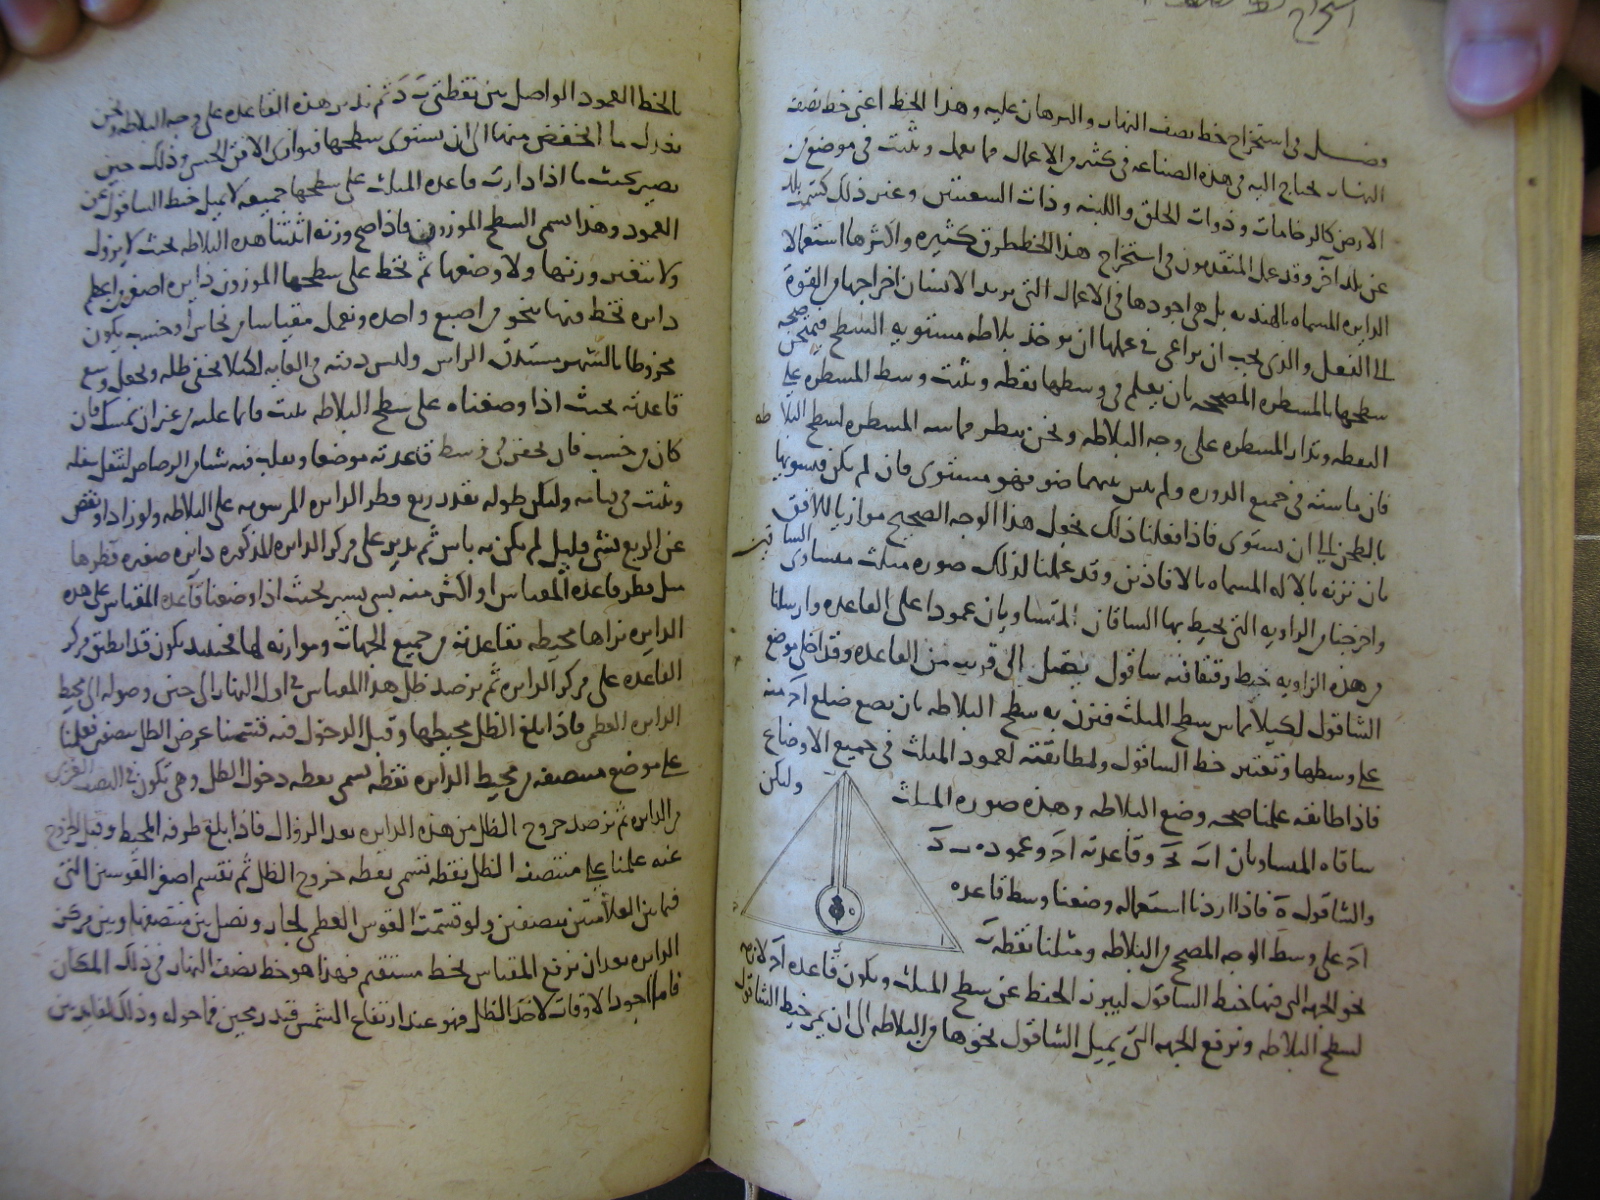 استخراج خط
فصل في استخراج خط نصف النهار والبرهان عليه وهذا الخط اعني خط نصف
النهار يحتاج اليه في هذه الصناعه في كثير من الاعمال مما يعمل ويثبت في موضع من
الارض كالرخامات وذوات الحلق واللبنه وذات السمتين وغير ذلك كسمت بلد
عن بلد آخر وقد عمل المتقدمون في استخراج هذا الخط طرق كثيره واكثرها استعمالا
الدايره المسماه بالهنديه بل هي اجودها في الاعمال التي يريد الانسان اخراجها من القوة
الى الفعل والذي يجب ان يراعى في عملها ان يوخذ بلاطه مستويه السطح فيمتحن صحه
سطحها بالمسطره المصححه بان يعلم في وسطها نقطه ويثبت وسط المسطره على
النقطه وتدار المسطره على وجه البلاطه ونحن ننظر مماسه المسطره لسطح البلاطه
فان ماسته في جميع الدوره ولم يبين بينهما ضو فهو مستوى فان لم يكن فسويها
بالطحن الى ان يستوى فاذا فعلنا ذلك نجعل هذا الوجه الصحيح موازيا للافق
بان نزنه بالاله المسماه بالافاذين وقد عملنا لذلك صوره مثلث متساوى الساقين
واخرجنا من الزاويه التي يحيط بها الساقان المتساويان عمودا على القاعده وارسلنا
من هذه الزاويه خيط رقيقا فيه ساقول يصل الى قريب من القاعده وقد اخلى موضع
الشاقول لكيلا يماس سطح المثلث فنزن به سطح البلاطه بان نضع ضلع اد منه
على وسطها ونعتبر خط الساقول ولمطابقته لعمود المثلث في جميع الاوضاع
فاذا طابقه علمنا صحه وضع البلاطه وهذه صوره المثلث وليكن
ساقاه المتساويان اب بج وقاعدته اد وعموده ب د
والشاقول ه فاذا اردنا استعماله وضعنا وسط قاعده
اد على وسط الوجه المصحح من البلاطه ومثلنا نقطه ب
نحو الجهه التي فيها خيط الساقول ليبرز الخيط عن سطح المثلث ويكون قاعده اد لازمه
لسطح البلاطه ونرفع الجهه التي يميل الشاقول نحوها من البلاطه الى ان يمر خيط الشاقول
بالخط العمود الواصل بين نقطتي ب د ثم ندير هذه القاعده على وجه البلاطه ونحن
نعدل ما انخفض منها الى ان يستوى سطحها فيوازى الافق الحسي وذلك حين
يصير بحيث ما اذا دارت قاعده المثلث على سطحها جميعه لا يميل خيط الساقول عن
العمود وهذا يسمى السطح الموزون فاذا صح وزنه اثبتنا هذه البلاطه بحيث لا يزول
ولا يتغير وزنها ولا وضعها ثم نخط على سطحها الموزون دايره اصغر من اعظم
دايره تخط فيها بنحو من اصبع واحده ونعمل مقياسا من نحاس او خشب يكون
مخروطا بالشهر مستدق الراس وليس دقته في الغايه لكيلا يخفى ظله ونجعل وسع
قاعدته بحيث اذا وضعناه على سطح البلاطه يثبت قايما عليه من غير ان يمسك فان
كان من خشب فان نحفر في وسط قاعدته موضعا ونصب فيه شيا من الرصاص ليثقل سفله
ويثبت في قيامه وليكن طوله بقدر ربع قطر الدايره المرسومه على البلاطه ولو زاد او نقص
عن الربع بشي قليل لم يكن به باس ثم ندير على مركز الدايره المذكوره دايره صغيره قطرها
مثل قطر قاعده المقياس او اكثر منه بشي يسير بحيث اذا وضعنا قاعده المقياس على هذه
الدايره نراها محيطه بقاعدته من جميع الجهات وموازيه لها فحينيذ يكون قد انطبق مركز
القاعده على مركز الدايره ثم نرصد ظل هذا المقياس في اول النهار الى حين وصوله الى محيط
الدايره العظمى فاذا بلغ الظل محيطها وقبل الدخول فيه قسمنا عرض الظل بنصفين فعلمنا
على موضع منتصفه من محيط الدايره نقطه تسمى نقطه دخول الظل وهي تكون في النصف الغربي
من الدايره ثم نرصد خروج الظل من هذه الدايره بعد الزوال فاذا بلغ طرفه المحيط وقبل الخروج
عنه علمنا على منتصف الظل نقطه تسمى نقطه خروج الظل ثم نقسم اصغر القوسين التي
فيما بين العلامتين بنصفين ولو قسمت القوس العظمى لجاز ونصل بين منتصفها وبين مركز
الدايره بعد ان نرفع المقياس بخط مستقيم فهذا هو خط نصف النهار في ذلك المكان
فاما اجود الاوقات لاخذ الظل فهو عند ارتفاع الشمس قيد رمحين فما حوله وذلك لفايدتين